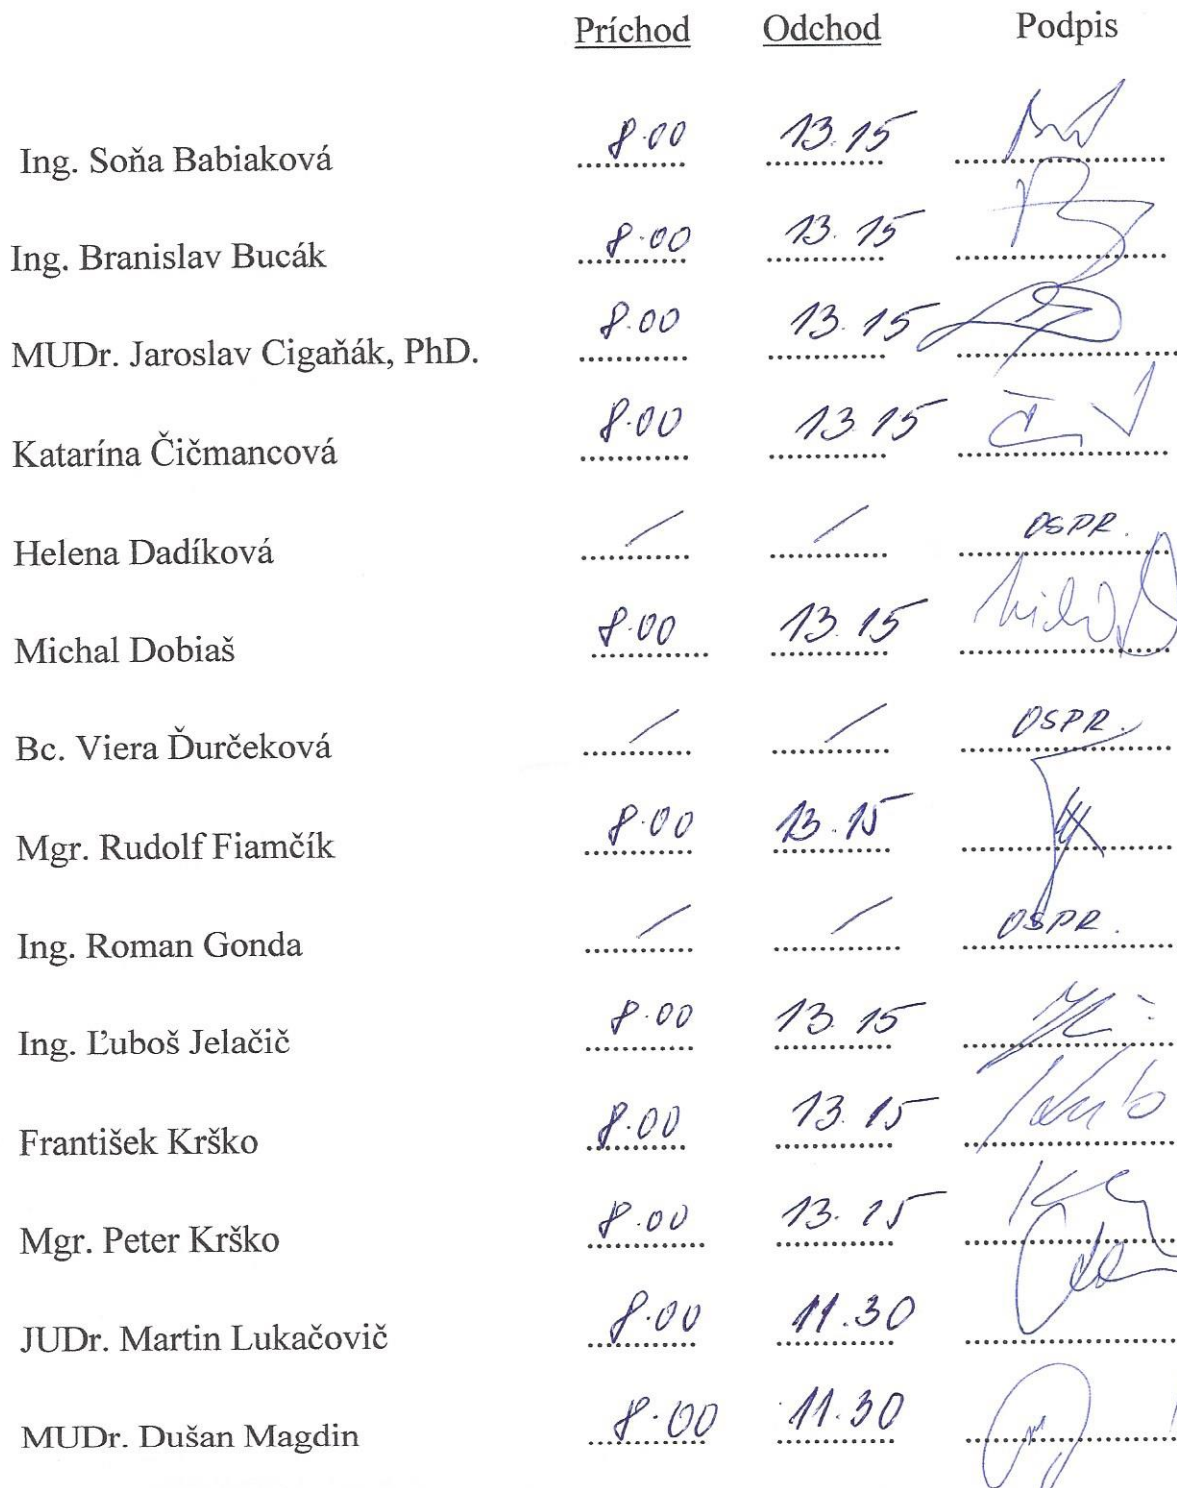 Príchod Odchod Podpis
Ing. Soňa Babiaková 8.00 13.15
Ing. Branislav Bucák 8.00 13.15
MUDr. Jaroslav Cigaňák, PhD. 8.00 13.15
Katarína Čičmancová 8.00 13.15
Helena Dadíková / / OSPR.
Michal Dobiaš 8.00 13.15
Bc. Viera Ďurčeková / / OSPR.
Mgr. Rudolf Fiamčík 8.00 13.15
Ing. Roman Gonda / / OSPR.
Ing. Ľuboš Jelačič 8.00 13.15
František Krško 8.00 13.15
Mgr. Peter Krško 8.00 13.15
JUDr. Martin Lukačovič 8.00 11.30
MUDr. Dušan Magdin 8.00 11.30